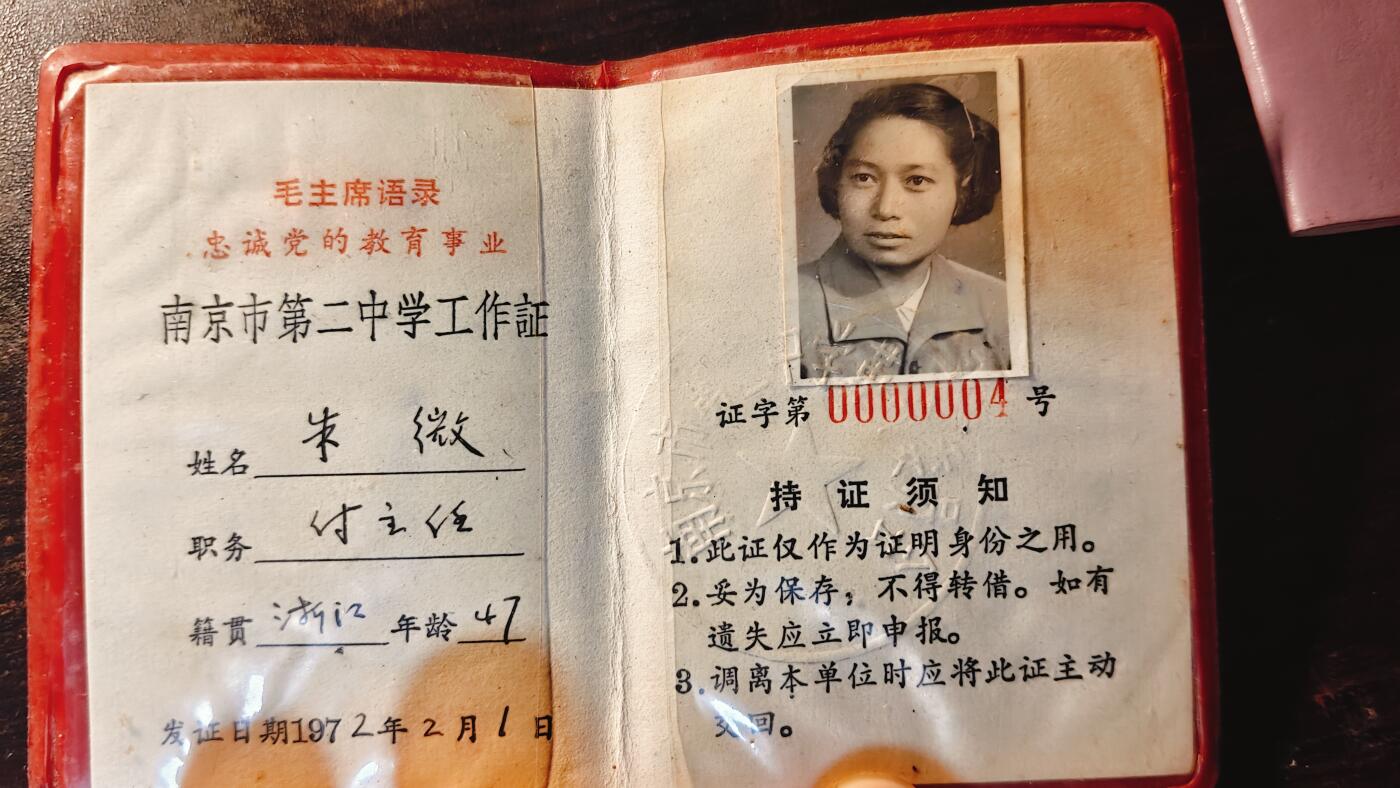 毛主席语录
忠诚党的教育事业
南京市第二中学工作証
姓名 朱 微
职务 付主任
籍贯 浙江 年龄 47
发证日期1972年2月1日
证字第 0000004 号
持证须知
1.此证仅作为证明身份之用。
2.妥为保存，不得转借。如有
遗失应立即申报。
3.调离本单位时应将此证主动
交回。